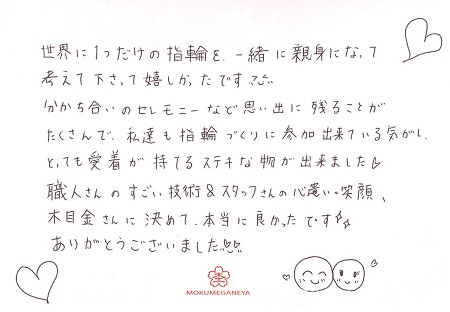 世界に1つだけの指輪を、一緒に親身になって
考えて下さって嬉しかったです
分かち合いのセレモニーなど思い出に残ることが
たくさんで、私達も指輪づくりに参加出来ている気がし、
とっても愛着が持てるステキな物が出来ました
職人さんのすごい技術&スタッフさんの心遣い・笑顔、
木目金さんに決めて、本当に良かったです
ありがとうございました
MOKUMEGANEYA